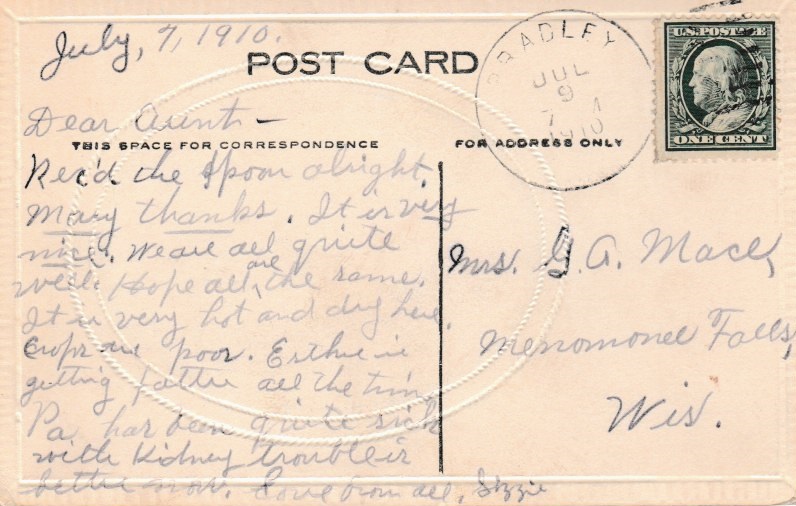 July, 7, 1910.
POST CARD
BRADLEY
JUL
9
7 M
1910
U.S. POSTAGE
ONE CENT
Dear Aunt –
THIS SPACE FOR CORRESPONDENCE
Rec'd the Spoon alright.
Many thanks. It is very
nice. We are all quite
well. Hope all are the same.
It is very hot and dry here.
Crops are poor. Esther is
getting fatter all the time.
Pa has been quite sick
with kidney trouble is
better now. Love from all, Lizzie
FOR ADDRESS ONLY
Mrs. G. A. Mace,
Menomonee Falls,
Wis.